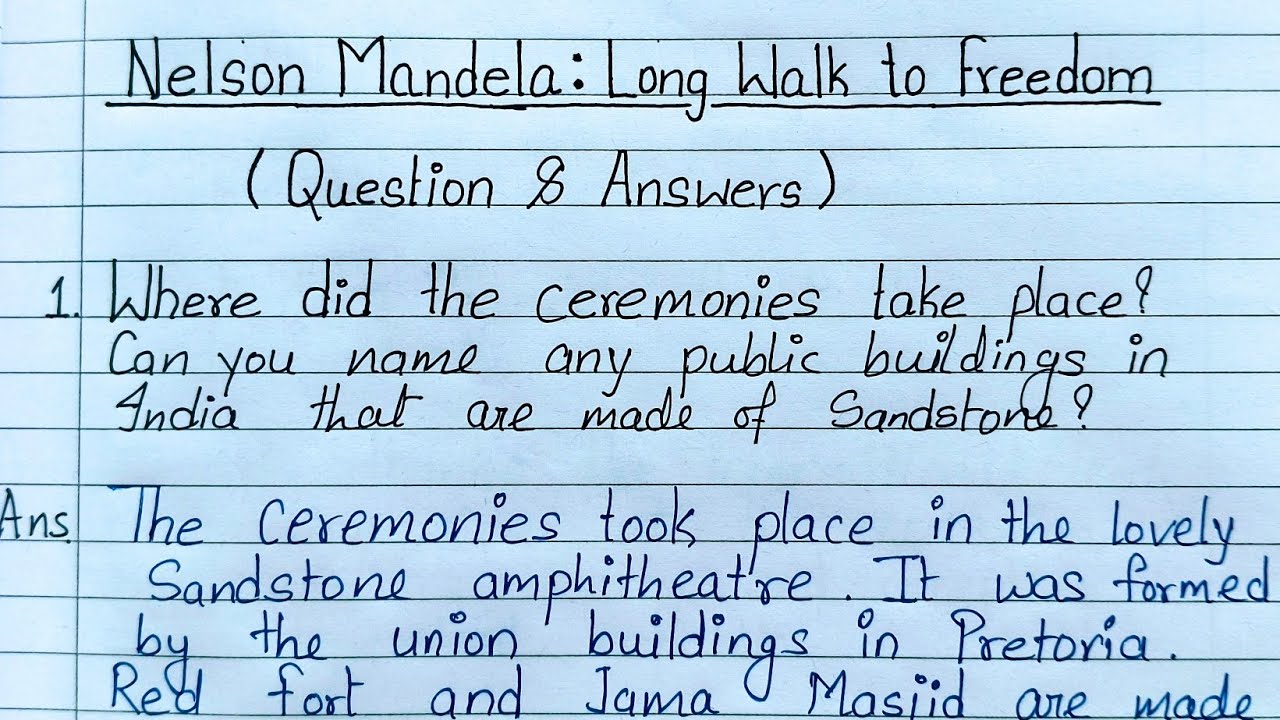 Nelson Mandela: Long Walk to Freedom
(Question & Answers)
1. Where did the ceremonies take place?
Can you name any public buildings in
India that are made of Sandstone?
Ans. The ceremonies took place in the lovely
Sandstone amphitheatre. It was formed
by the union buildings in Pretoria.
Red fort and Jama Masjid are made